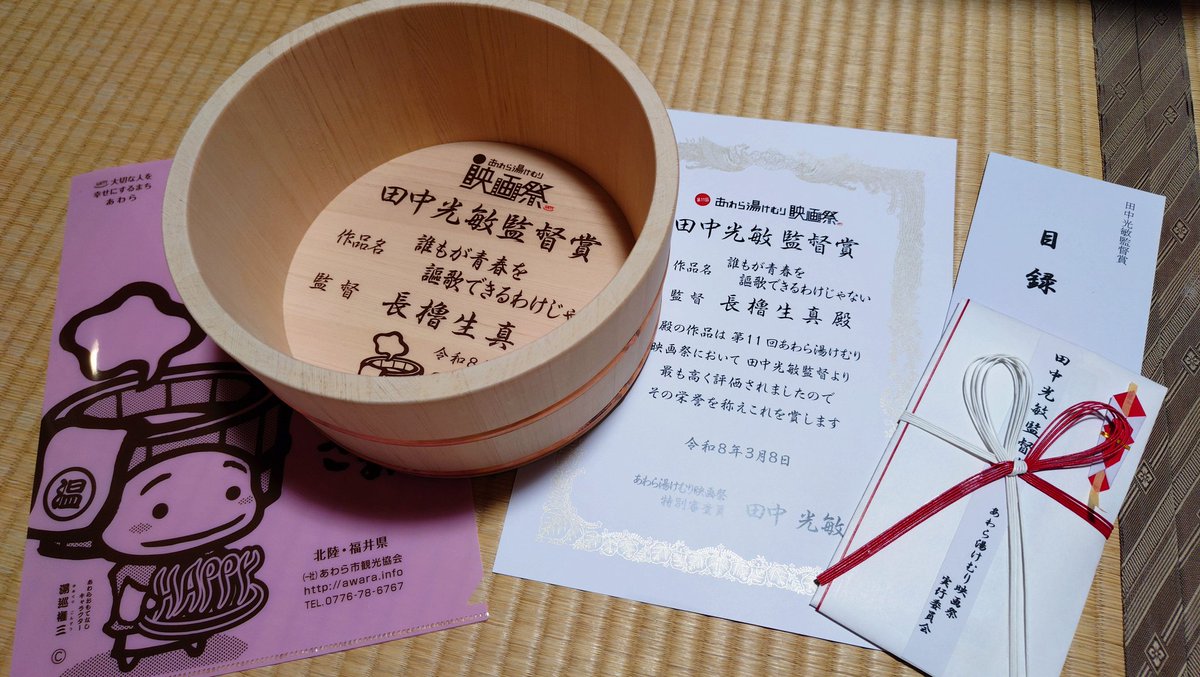 大切な人を
幸せにするまち
あわら
温
HAPPY
北陸・福井県
(一社)あわら市観光協会
http://awara.info
TEL.0776-78-6767
あわらのおもてなし
キャラクター
湯巡権三
©
あわら湯けむり
映画祭
田中光敏監督賞
作品名 誰もが青春を
謳歌できるわけじゃな
監督 長櫓生真
令和8
あわら湯けむり映画祭
田中光敏監督賞
作品名 誰もが青春を
謳歌できるわけじゃない
監督 長櫓生真殿
殿の作品は 第11回あわら湯けむり
映画祭において 田中光敏監督より
最も高く評価されましたので
その栄誉を称えこれを賞します
令和8年3月8日
あわら湯けむり映画祭
特別審査員 田中光敏
田中光敏監督賞
目録
田中光敏監督
あわら湯けむり映画祭
実行委員会